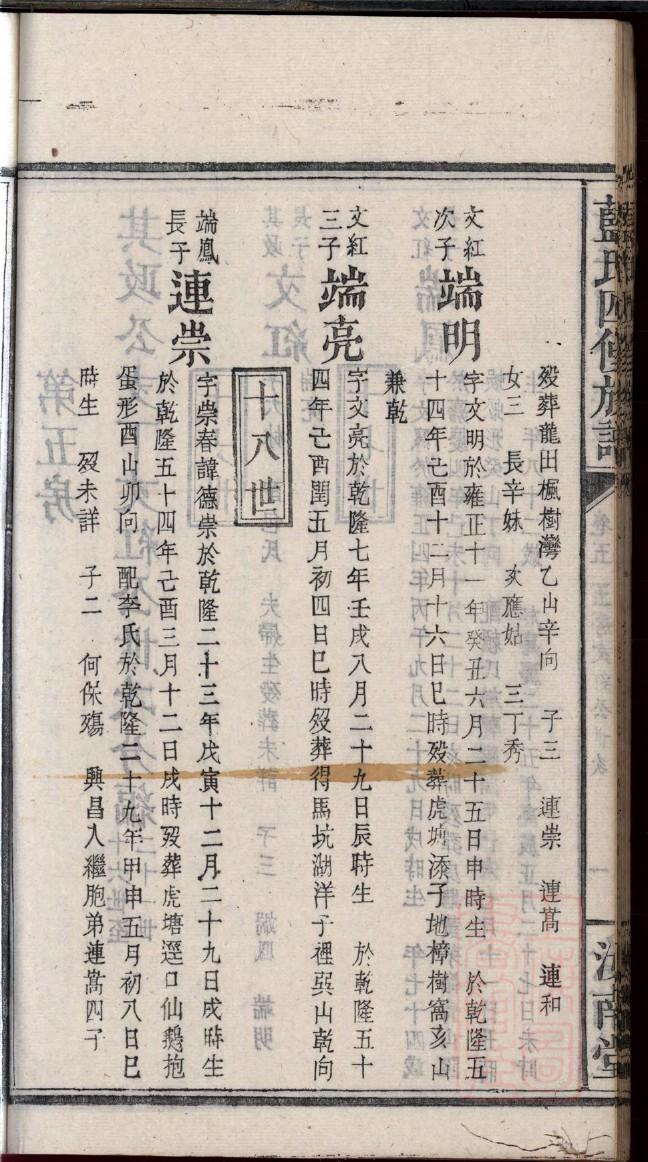 藍氏四修族譜
卷五
汝南堂
歿葬龍田楓樹灣乙山辛向 子三 連崇 連嵩 連和
女三 長辛妹 次應姑 三丁秀
文紅次子 端明 字文明於雍正十一年癸丑六月二十五日申時生 於乾隆五
十四年己酉十二月十六日巳時歿葬虎塘添子地樟樹窩亥山
兼乾
文紅三子 端亮 字文亮於乾隆七年壬戌八月二十九日辰時生 於乾隆五十
四年己酉閏五月初四日巳時歿葬得馬坑湖洋子裡巽山乾向
十八世
端鳳長子 連崇 字崇春諱德崇於乾隆二十三年戊寅十二月二十九日戌時生
於乾隆五十四年己酉三月十二日戌時歿葬虎塘逕口仙鵝抱
蛋形酉山卯向 配李氏於乾隆二十九年甲申五月初八日巳
時生 歿未詳 子二 何保殤 興昌入繼胞弟連嵩四子